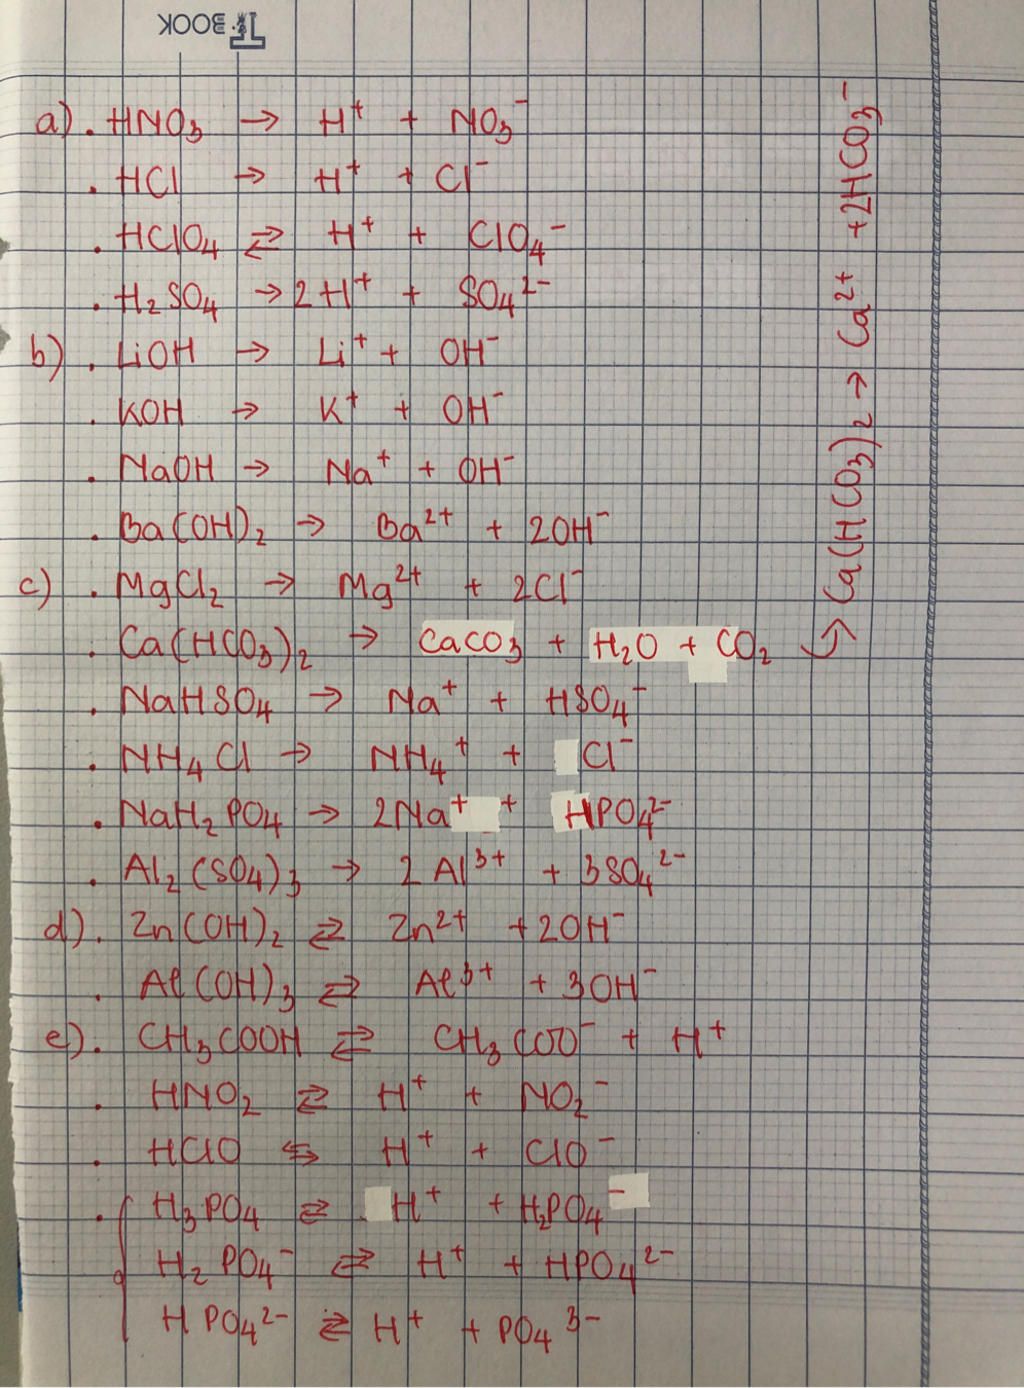 T BOOK
a). HNO₃ → H⁺ + NO₃⁻
. HCl → H⁺ + Cl⁻
. HClO₄ ⇄ H⁺ + ClO₄⁻
. H₂SO₄ → 2H⁺ + SO₄²⁻
b) . LiOH → Li⁺ + OH⁻
. KOH → K⁺ + OH⁻
. NaOH → Na⁺ + OH⁻
. Ba(OH)₂ → Ba²⁺ + 2OH⁻
c) . MgCl₂ → Mg²⁺ + 2Cl⁻
. Ca(HCO₃)₂ → CaCO₃ + H₂O + CO₂
↪ Ca(HCO₃)₂ → Ca²⁺ + 2HCO₃⁻
. NaHSO₄ → Na⁺ + HSO₄⁻
. NH₄Cl → NH₄⁺ + Cl⁻
. NaH₂PO₄ → 2Na⁺ + HPO₄²⁻
. Al₂(SO₄)₃ → 2Al³⁺ + 3SO₄²⁻
d). Zn(OH)₂ ⇄ Zn²⁺ + 2OH⁻
. Al(OH)₃ ⇄ Al³⁺ + 3OH⁻
e). CH₃COOH ⇄ CH₃COO⁻ + H⁺
. HNO₂ ⇄ H⁺ + NO₂⁻
. HClO ⇆ H⁺ + ClO⁻
. H₃PO₄ ⇄ H⁺ + H₂PO₄⁻
H₂PO₄⁻ ⇄ H⁺ + HPO₄²⁻
HPO₄²⁻ ⇄ H⁺ + PO₄³⁻